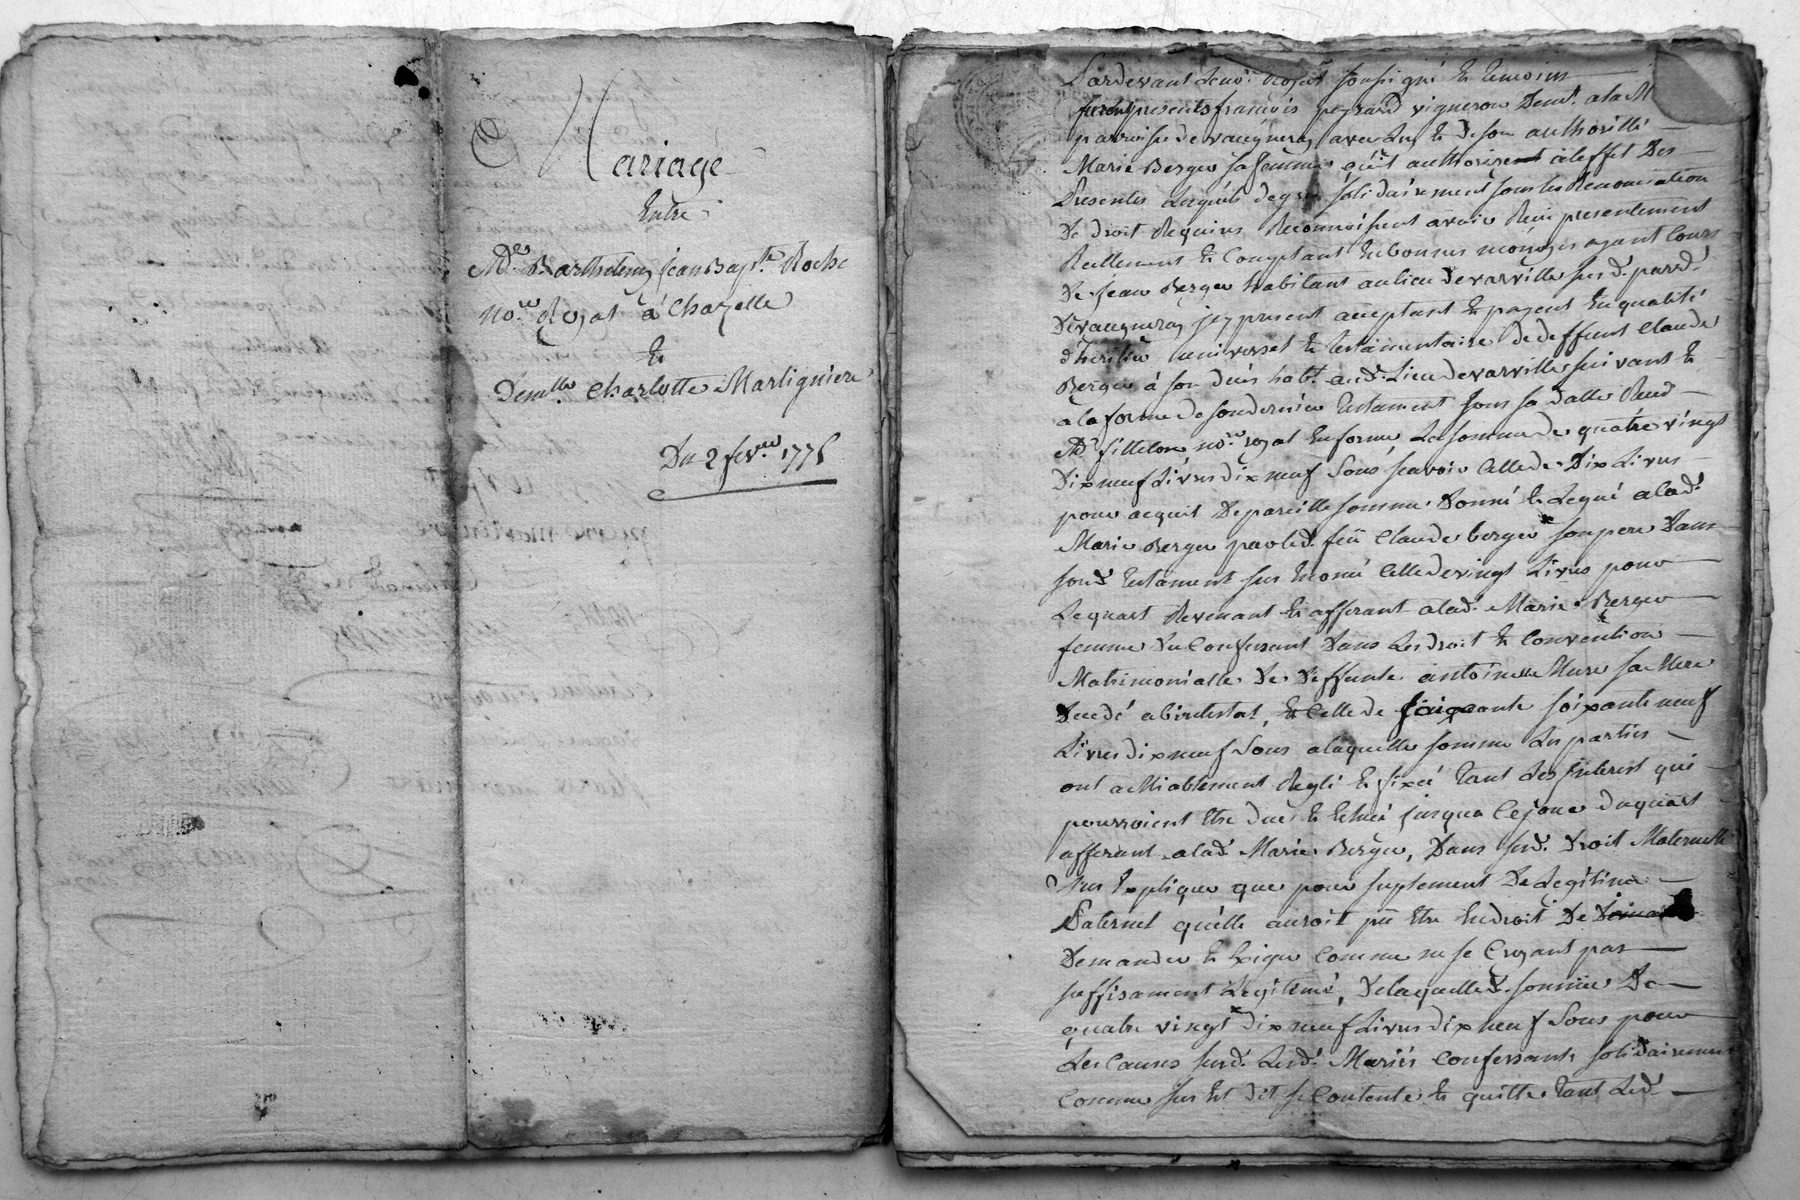 Mariage
Entre
Me Barthelemy Jean Bapte Roche
nore Royal à Chazelle
Et
Demlle Charlotte Martigniere
Du 2 fevrier 177
Pardevant Le nore Royal soussigné Et temoins
furent presents francois vigneron Demt a la
parroisse de vaugneray avec Luy Et De son authoritté
Marie Berger sa femme qu'il authorisent à l'effet Des
Presentes Lesquels de gré solidairement sous les Renonciation
De droit Requises Reconnoissent avoir Reçu presentement
Reellement Et Comptant En bonnes monoyes ayant Cours
De Jean Berger habitant au lieu De varville susd. parsse
De vaugneray icy present acceptant Et payent En qualité
d'heritier universel Et testamentaire De deffunt Claude
Berger à son deces habt aud. Lieu de varville suivant Et
a la forme de son dernier testament sous sa datte Reçu
Me nore royal En forme La somme de quatre vingt
Dix neuf Livres dix neuf Sous scavoir Celle de Dix Livres
pour acquit De pareille somme Donné Et Legué a lad.
Marie Berger par led. feü Claude berger son pere Dans
sond. testament sus Enoncé Celle de vingt Livres pour
Le quart Revenant Et afferant a lad. Marie Berger
femme Du Confessant Dans Les droit Et Convention
Matrimonialle De Deffunte antoinette Mure sa Mere
Decedé abintestat, Et Celle de soixante neuf
Livres dix neuf Sous a laquelle somme Les parties
ont aMiablement Reglé Et fixéé tant Les Interest qui
pourroient Etre dus Et Echus jusqua Ce jour du quart
afferant a lad. Marie Berger, Dans sesd. Droit Maternelle
sus Expliquer que pour suplement De Legitime
Paternel qu'elle auroit pü Etre En droit De
Demander Et Exiger Comme ne se Croyant pas
suffisament Legitimé, De laquelle d. somme De
quatre vingt dix neuf Livres dix neuf Sous pour
Les Causes susd. Lesd. Mariés Confessants solidairement
Comme sus Est dit se Contente Et quitte tant Led.